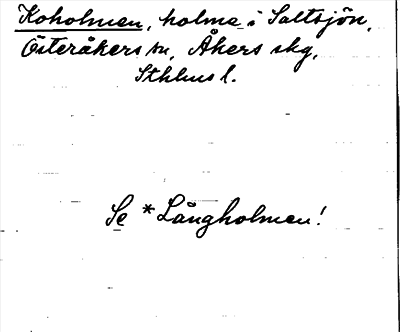 Koholmen, holme i Saltsjön,
Österåkers sn, Åkers skg,
Sthlms l.
Se *Långholmen!